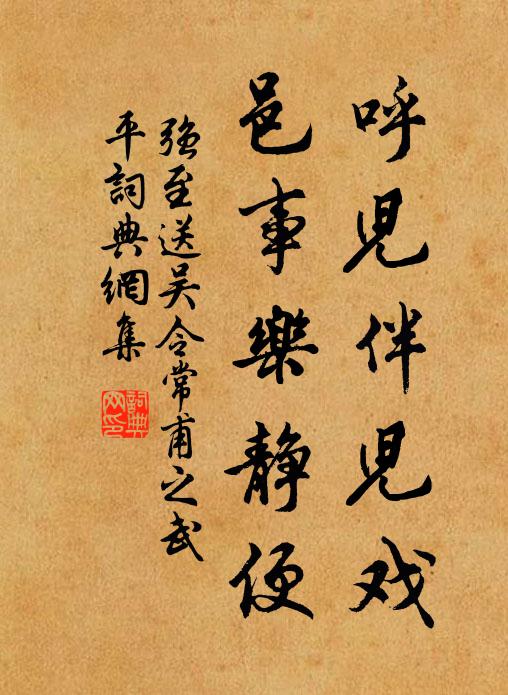 呼児伴児戏
邑事樂静便
强至送吴令常甫之武
平詞典網集
詞典
网印